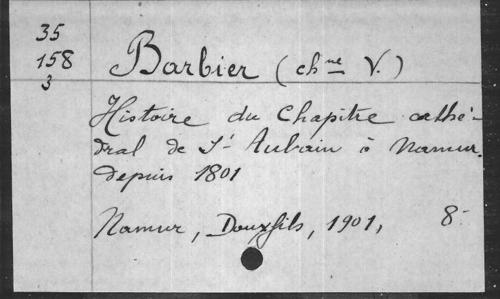 35
158
3
Barbier (chne V.)
Histoire du Chapitre cathé-
dral de St Aubain à Namur.
depuis 1801
Namur, Douxfils, 1901, 8-